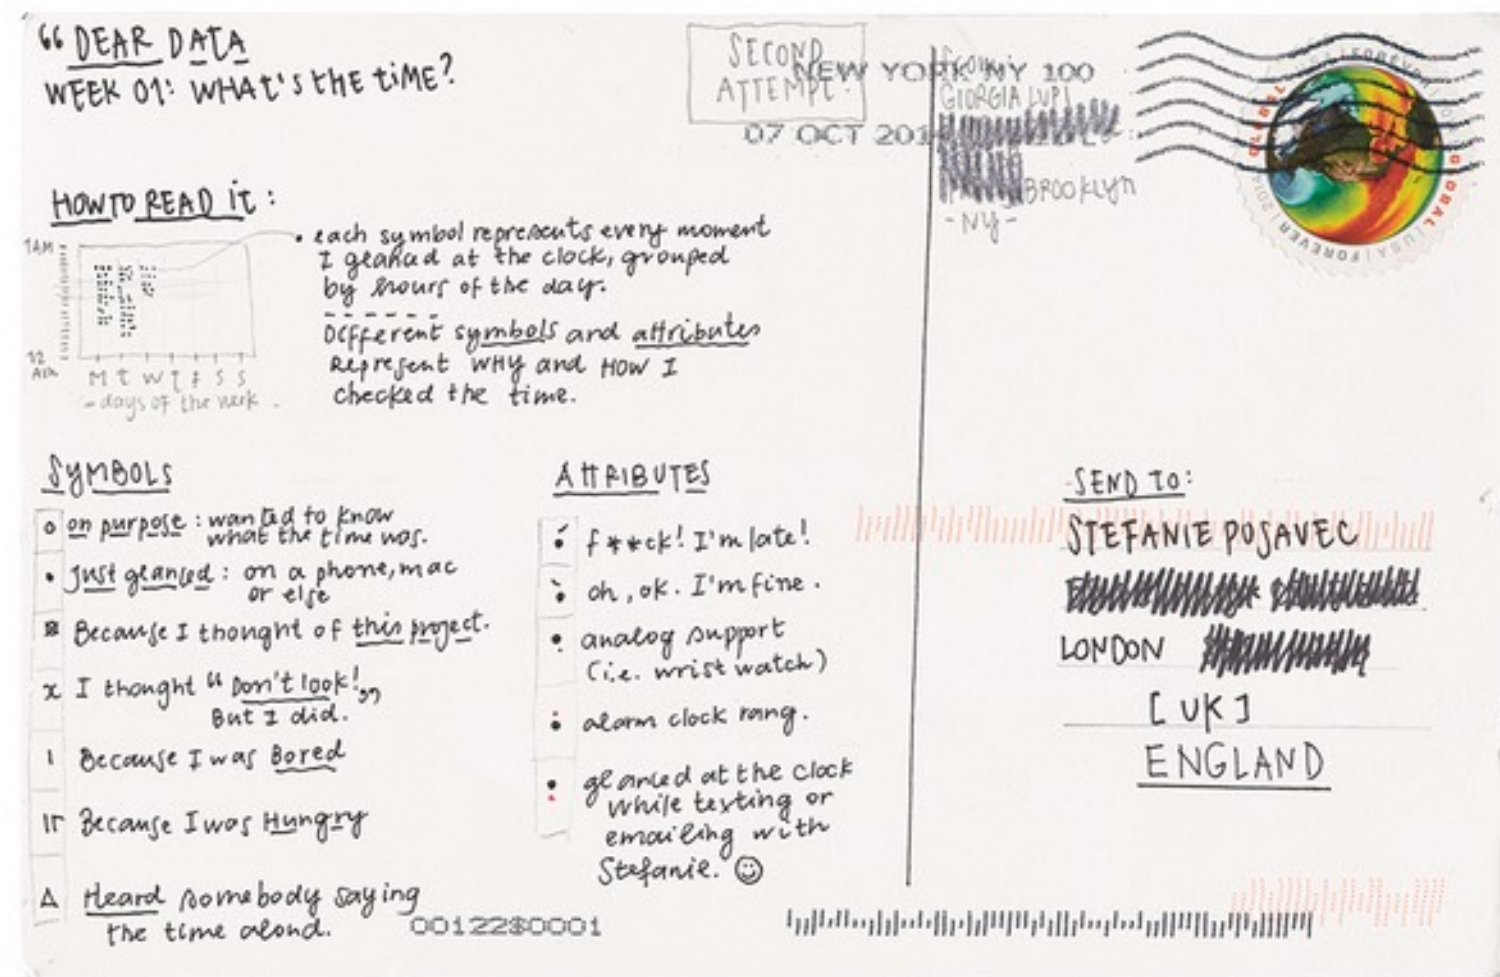 “ DEAR DATA
WEEK 01: WHAT'S THE TIME?
SECOND
ATTEMPT!
NEW YORK NY 100
07 OCT 201
FROM:
GIORGIA LUPI
BROOKLYN
- NY -
GLOBAL
FOREVER
GLOBAL | USA | FOREVER | 2014
HOW TO READ IT:
1AM
12
AM
M T W T F S S
- days of the week -
• each symbol represents every moment
I glanced at the clock, grouped
by hours of the day.
Different symbols and attributes
Represent WHY and HOW I
checked the time.
SYMBOLS
on purpose: wanted to know
what the time was.
Just glanced: on a phone, mac
or else
Because I thought of this project.
x I thought “Don't look!”
But I did.
Because I was Bored
Because I was Hungry
Δ Heard somebody saying
the time aloud.
ATTRIBUTES
f**ck! I'm late!
oh, ok. I'm fine.
analog support
(i.e. wrist watch)
alarm clock rang.
glanced at the clock
while texting or
emailing with
Stefanie. ☺
SEND TO:
STEFANIE POSAVEC
LONDON
[UK]
ENGLAND
00122$0001